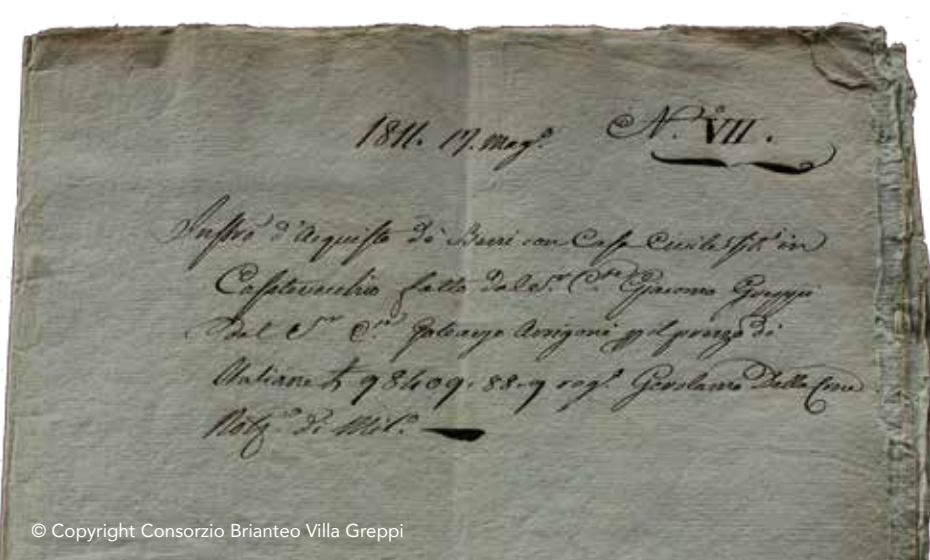 1811. 17. Mag.o N.o VII.
Instro d'Acquisto di Beni con Casa Civile sit.i in
Casatevecchio fatto dal S.r C.te Giacomo Greppi
dal S.r C.te Galeazzo Arrigoni pel prezzo di
Italiane £ 98409.88.9 rog.o Gerolamo Della Croce
Not.o di Mil.o
© Copyright Consorzio Brianteo Villa Greppi